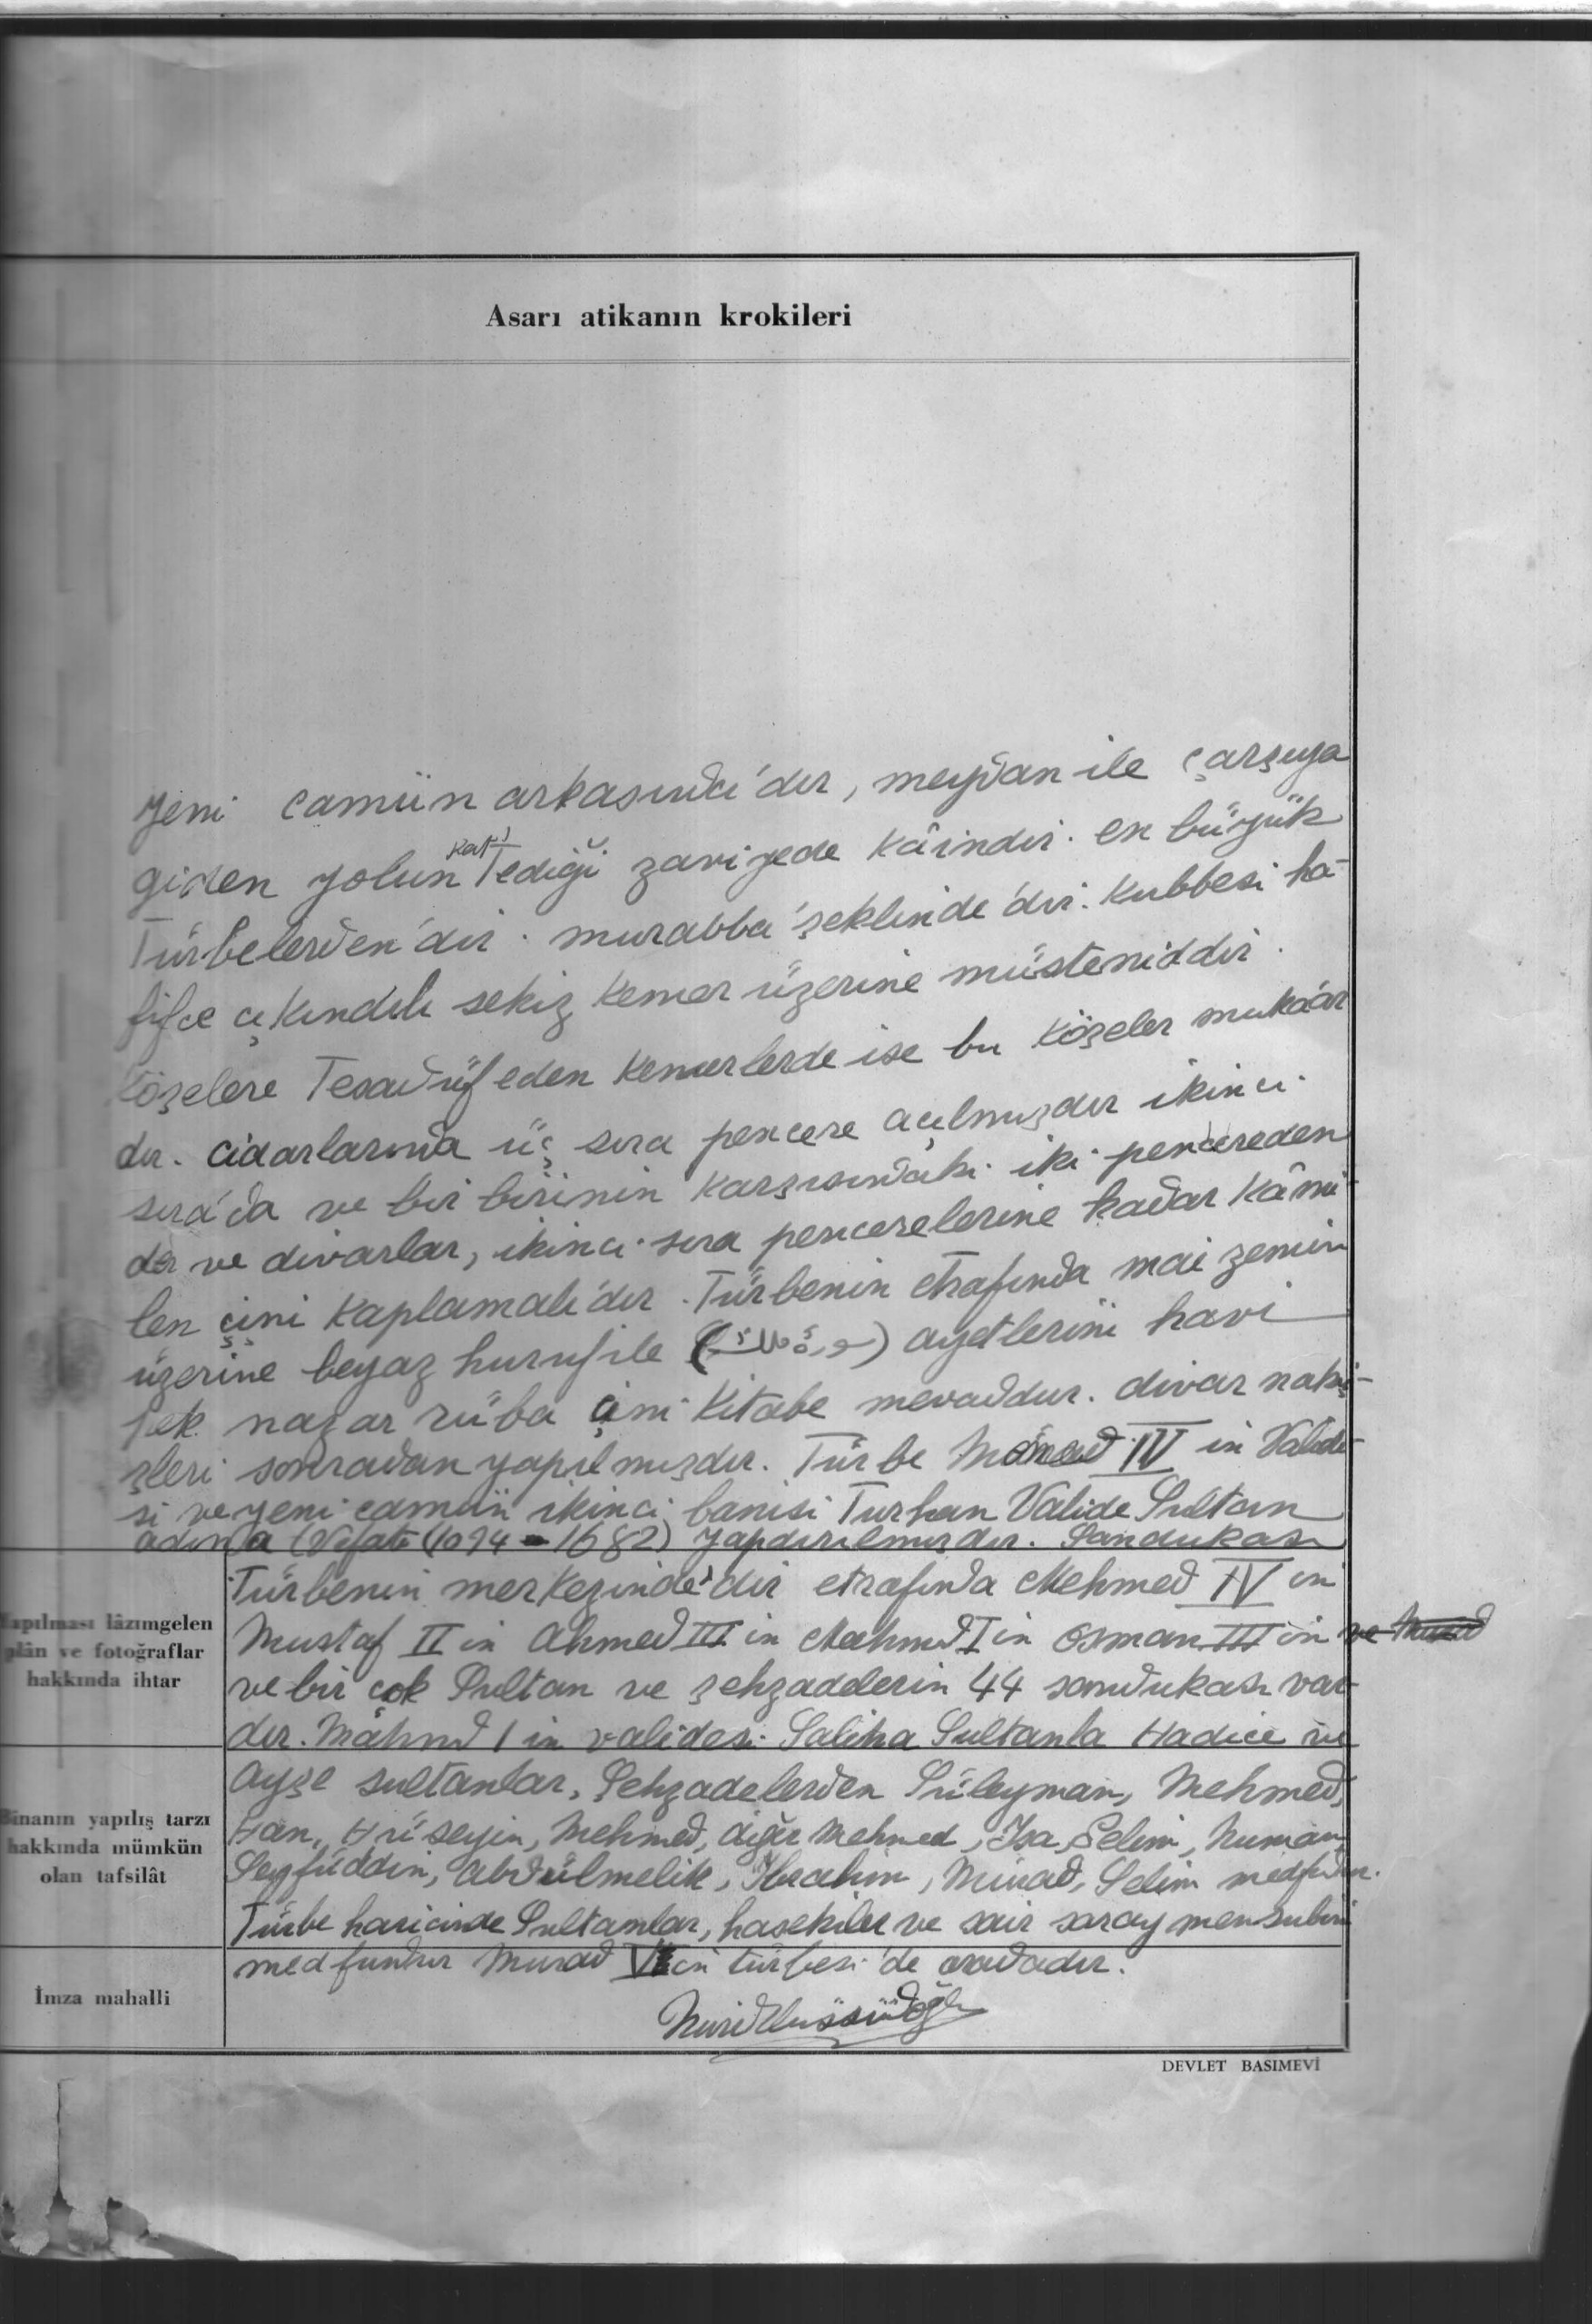 Asarı atikanın krokileri
Yeni camiin arkasında'dır, meydan ile çarşuya
giden yolun kat' Tediği zaviyede kâindir. en büyük
Türbelerden'dir. murabba' şeklinde'dir. Kubbesi ha-
fifce çıkındılı sekiz kemer üzerine müsteniddir.
Köşelere Tesadüf eden kemerlerde ise bu köşeler mukaar
dır. cidarlarında üç sıra pencere açılmışdır ikinci
sıra'da ve bir birinin karşısındaki iki pencereden
dır ve divarlar, ikinci sıra pencerelerine kadar kâmi-
len çini kaplamalı'dır. Türbenin etrafında mai zemin
üzerine beyaz huruf ile ( ) ayetlerini havi
pek nazar rüba çini Kitabe mevcuddur. divar nakı-
şleri sonradan yapılmışdır. Türbe IV in Valide-
si ve yeni camiin ikinci banisi Turhan Valide Sultan
adına (Vefatı (1094 - 1682) yapdırılmışdır. Sandukası
Türbenin merkezinde'dir etrafında Mehmed IV in
Mustaf II in Ahmed III in Mahmud I in Osman III in ve Murad
ve bir çok Sultan ve şehzadelerin 44 sandukası var-
dır. Mahmud I in validesi Saliha Sultanla Hadice ve
Ayşe sultanlar, Şehzadelerden Süleyman, Mehmed,
Han, Hüseyin, Mehmed, diğer Mehmed, Isa, Selim, Numan,
Seyfüddin, Abdülmelik, Ibrahim, Murad, Selim medfundur.
Türbe haricinde Sultanlar, hasekiler ve sair saray mensubini
medfundur Murad V in türbesi'de oradadır.
Yapılması lâzımgelen
plân ve fotoğraflar
hakkında ihtar
Binanın yapılış tarzı
hakkında mümkün
olan tafsilât
İmza mahalli
DEVLET BASIMEVİ